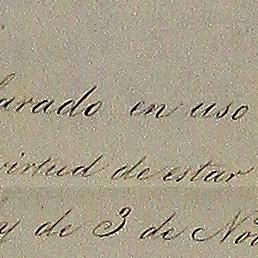 larado en uso
virtud de estar
y de 3 de Nov